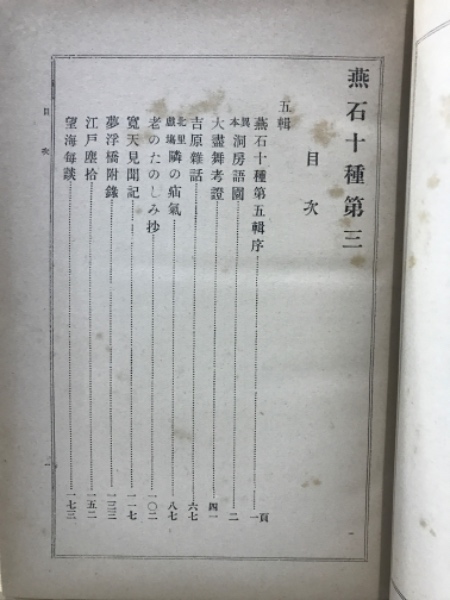 燕石十種第三
目次
五輯
燕石十種第五輯序……一頁
異本洞房語園……二
大盡舞考證……四一
吉原雜話……六七
北里戲場隣の疝氣……八七
老のたのしみ抄……一〇二
寬天見聞記……一一七
夢浮橋附錄……一三三
江戶塵拾……一五二
望海每談……一七三
目次
一